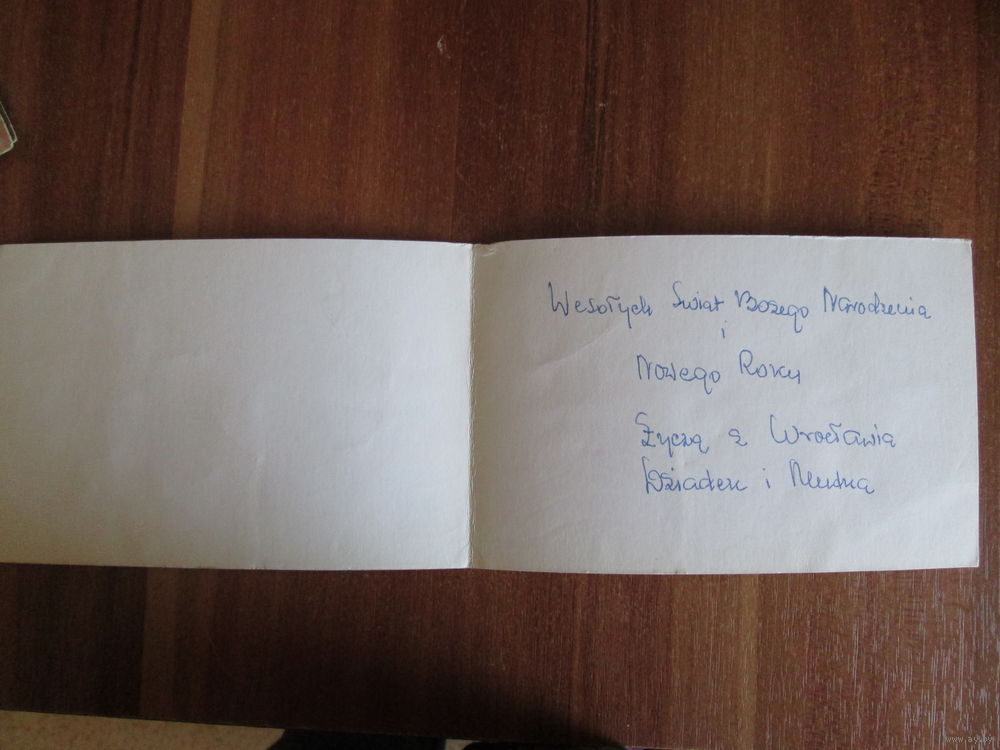 Wesołych Świąt Bożego Narodzenia
i
Nowego Roku
Życzą z Wrocławia
Dziadek i
www.ay.by